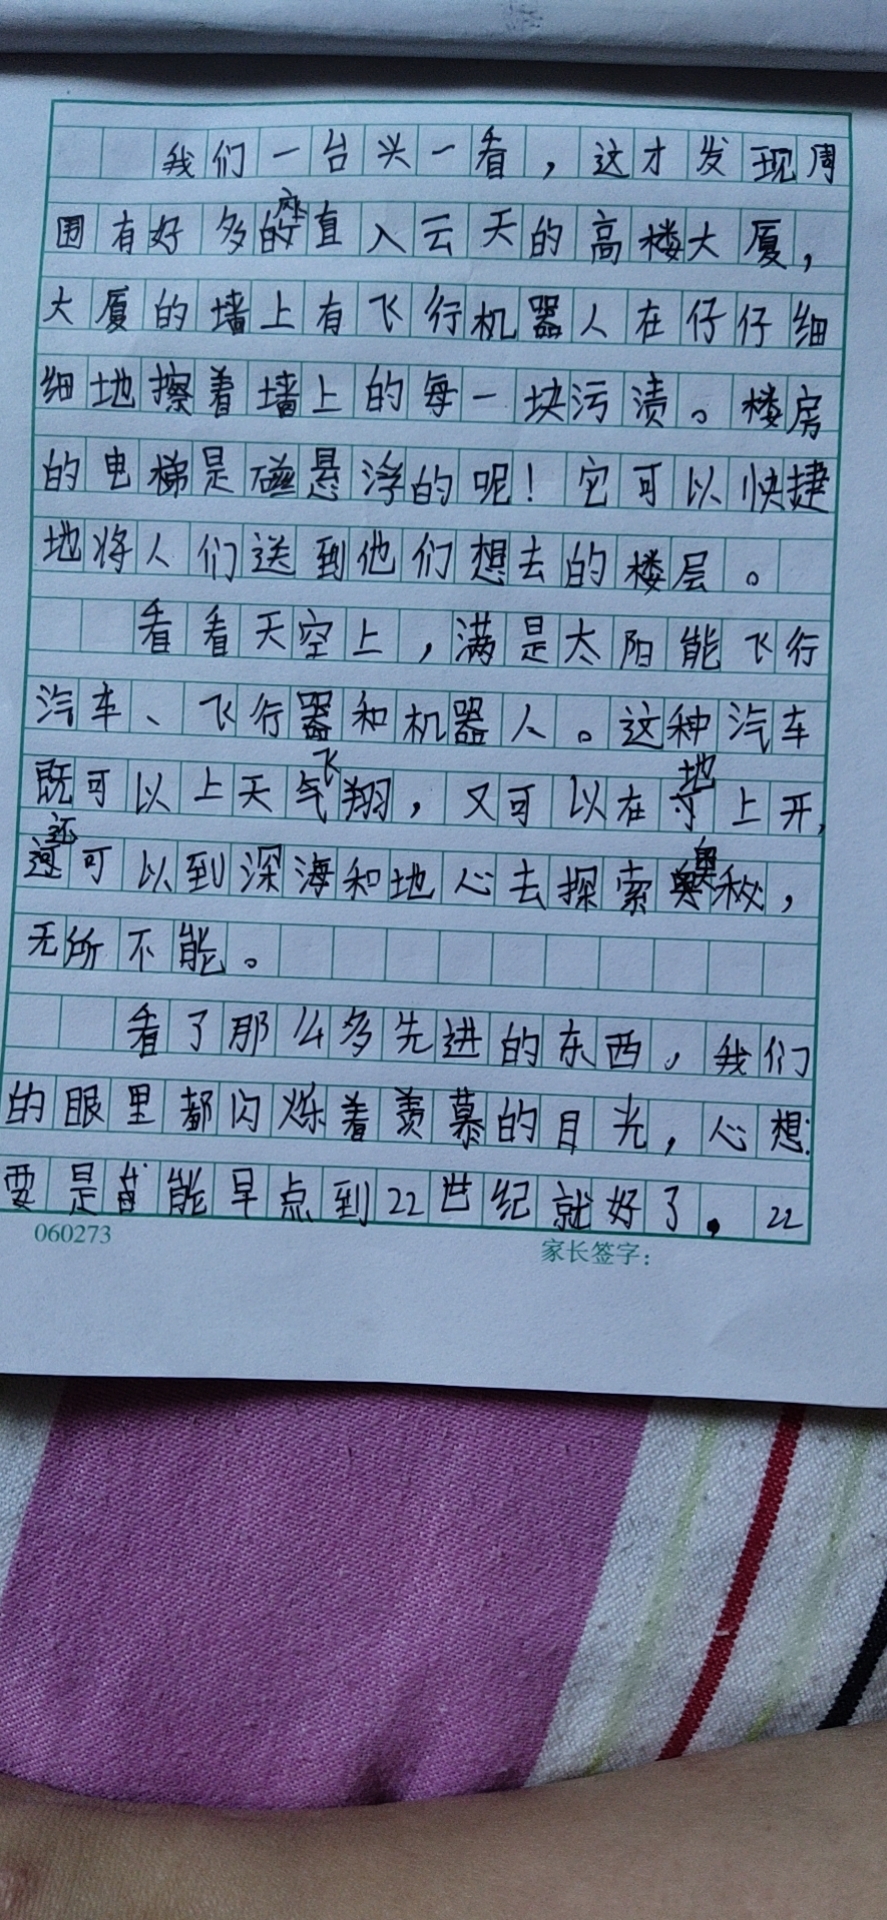 我们一台头一看，这才发现周
围有好多的直入云天的高楼大厦，
大厦的墙上有飞行机器人在仔仔细
细地擦着墙上的每一块污渍。楼房
的电梯是磁悬浮的呢！它可以快捷
地将人们送到他们想去的楼层。
看看天空上，满是太阳能飞行
汽车、飞行器和机器人。这种汽车
既可以上天飞翔，又可以在地上开，
还可以到深海和地心去探索奥秘，
无所不能。
看了那么多先进的东西。我们
的眼里都闪烁着羡慕的目光，心想：
要是能早点到22世纪就好了。22
060273
家长签字：